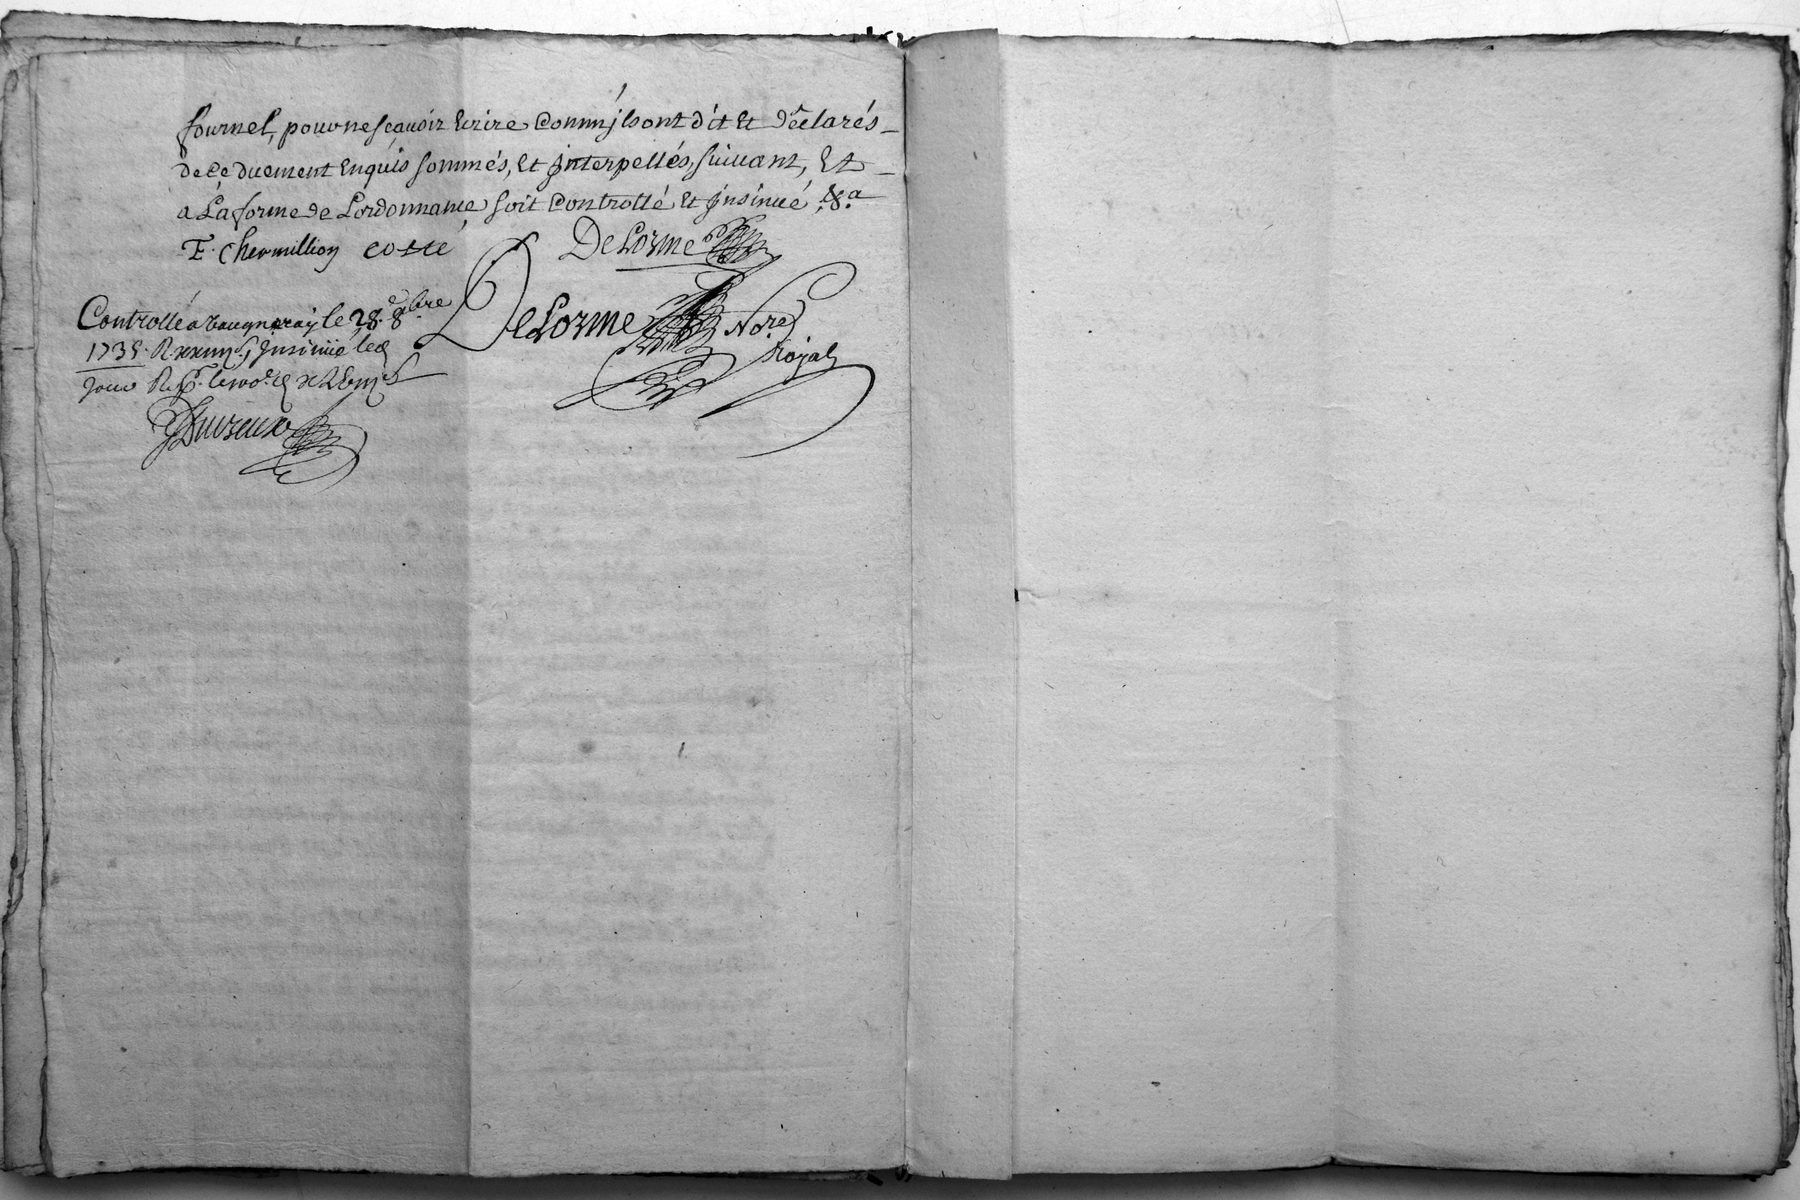 fournel, pour ne scavoir ecrire comm'jls ont dit et declarés
de ce duement enquis sommés, et jnterpellés, suivant, et
a La forme de Lordonnance soit controllé et jnsinué
F. Chermillion costé DeLorme
DeLorme No.re
Royal
Controllé a vaugneray le 28. 8bre
1735. R. jnsinué led
jour R.